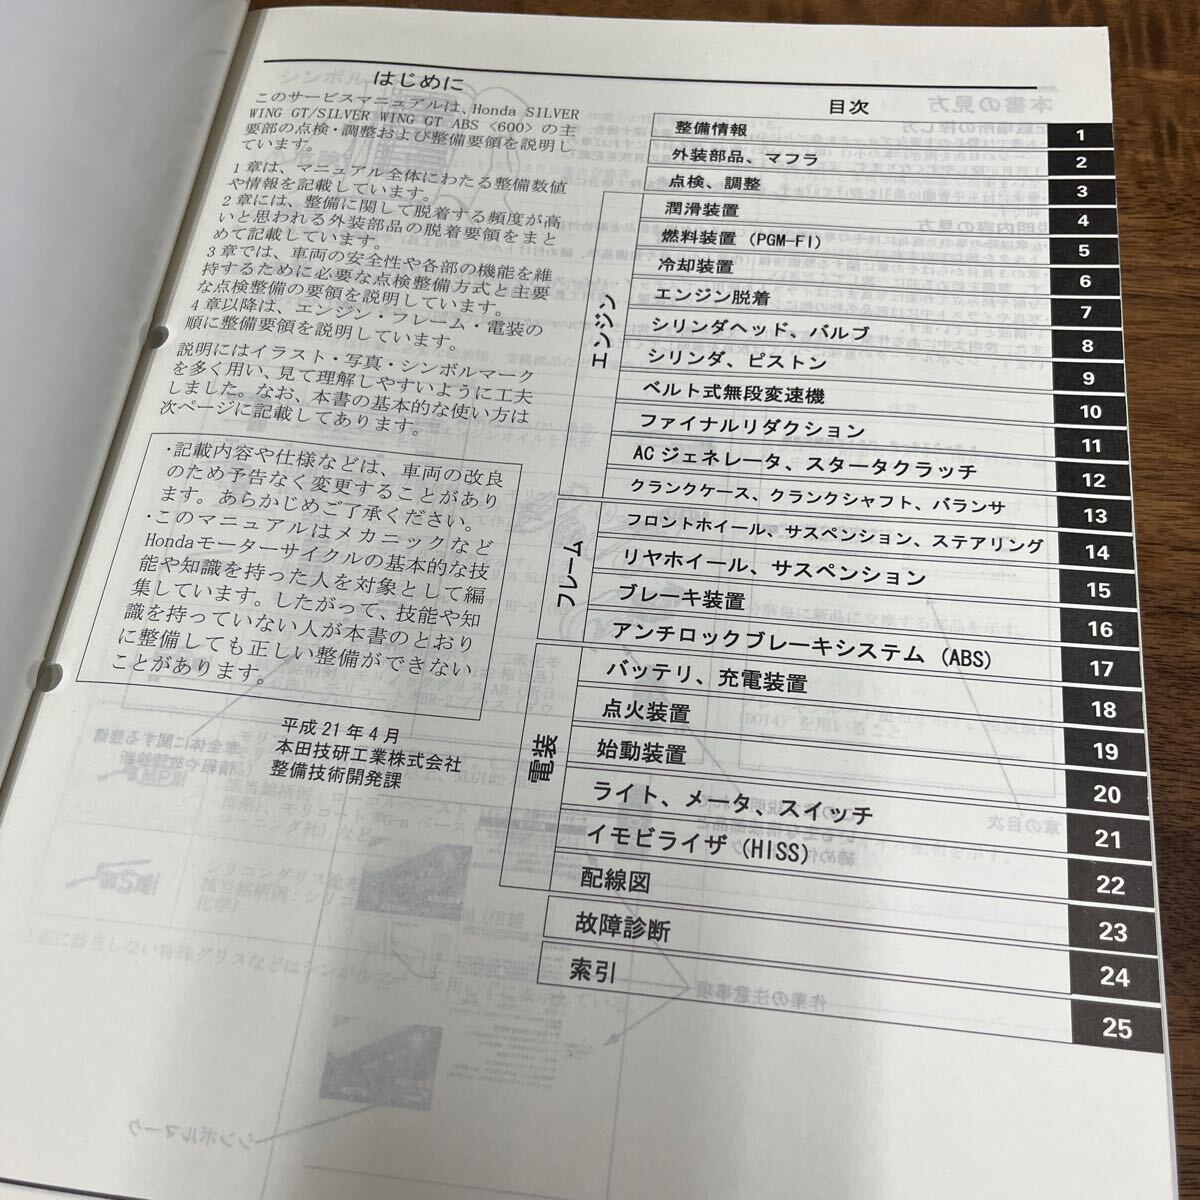 はじめに
このサービスマニュアルは、Honda SILVER
WING GT/SILVER WING GT ABS〈600〉の主
要部の点検・調整および整備要領を説明し
ています。
1章は、マニュアル全体にわたる整備数値
や情報を記載しています。
2章には、整備に関して脱着する頻度が高
いと思われる外装部品の脱着要領をまと
めて記載しています。
3章では、車両の安全性や各部の機能を維
持するために必要な点検整備方式と主要
な点検整備の要領を説明しています。
4章以降は、エンジン・フレーム・電装の
順に整備要領を説明しています。
説明にはイラスト・写真・シンボルマーク
を多く用い、見て理解しやすいように工夫
しました。なお、本書の基本的な使い方は
次ページに記載してあります。
・記載内容や仕様などは、車両の改良
のため予告なく変更することがあり
ます。あらかじめご了承ください。
・このマニュアルはメカニックなど
Hondaモーターサイクルの基本的な技
能や知識を持った人を対象として編
集しています。したがって、技能や知
識を持っていない人が本書のとおり
に整備しても正しい整備ができない
ことがあります。
平成21年4月
本田技研工業株式会社
整備技術開発課
目次
整備情報 1
外装部品、マフラ 2
点検、調整 3
エンジン
潤滑装置 4
燃料装置(PGM-FI) 5
冷却装置 6
エンジン脱着 7
シリンダヘッド、バルブ 8
シリンダ、ピストン 9
ベルト式無段変速機 10
ファイナルリダクション 11
ACジェネレータ、スタータクラッチ 12
クランクケース、クランクシャフト、バランサ 13
フレーム
フロントホイール、サスペンション、ステアリング 14
リヤホイール、サスペンション 15
ブレーキ装置 16
アンチロックブレーキシステム(ABS) 17
電装
バッテリ、充電装置 18
点火装置 19
始動装置 20
ライト、メータ、スイッチ 21
イモビライザ(HISS) 22
配線図 23
故障診断 24
索引 25